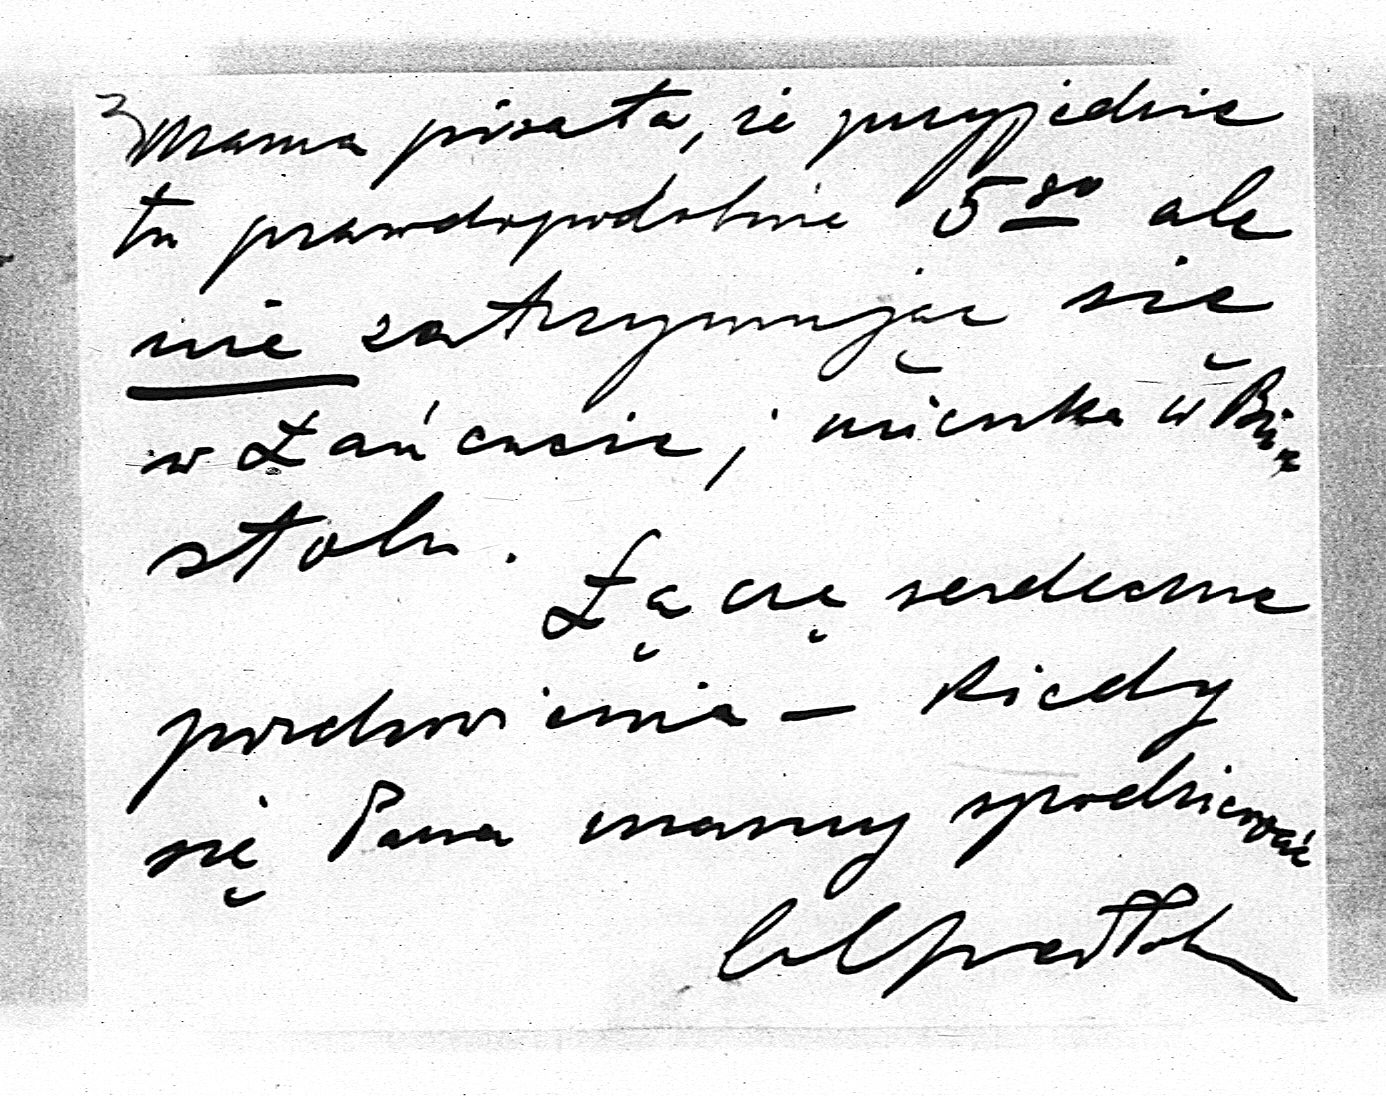 Mama pisała, że przyjedzie
tu prawdopodobnie 5⁸⁰ ale
nie zatrzymując się
w Łańcucie; mieszka w Bry
stolu.
Łączę serdeczne
pozdrowienia — Kiedy
się Pana mamy spodziewać